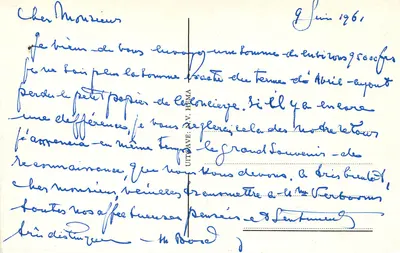 Cher Monsieur 9 Juin 1961
Je viens de vous envoyer une somme de environs 95000 frs
je ne sais plus la somme exacte du terme d'Avril - ayant
perdu le petit papier de la concierge. Si il y a encore
une différence, je vous règlerai cela dès notre retour
j'apporterai en même temps le grand Souvenir - de
reconnaissance, que nous vous devons. A très bientôt,
cher monsieur, veuillez transmettre à Mme
toutes nos affectueuses pensées et Sentiments
très distingués
UITGAVE: J. V. HEMA